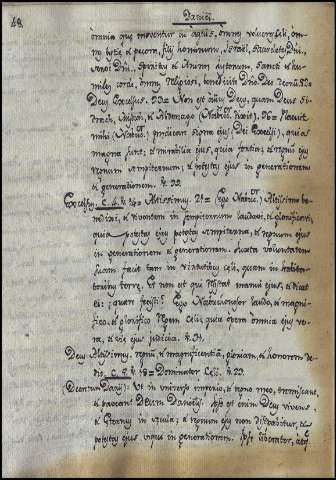 48.
Daniel.
omnia quæ moventur in aquis, omnes volucres Cœli, om-
nes bestiæ & pecora, filij hominum, Israël, Sacerdotes Dñi,
servi Dñi, spiritus & animæ justorum, sancti & hu-
miles corde, omnes religiosi, benedicite Dñm Deus
Deus Excelsus. Non est alius Deus, quam Deus Si-
drach, Misach, & Abdenago
(Nabuc: prædicat signa ejus, Dei Excelsi), quia
magna sunt; & mirabilia ejus, quia fortia; & regnum ejus
regnum sempiternum, & potestas ejus in generationem
& generationem.
Excelsus, Altissimus. (Ego Nabuc:) Altissimo be-
nedixi, & viventem in sempiternum laudavi, & glorificavi,
quia potestas ejus potestas sempiterna, & regnum ejus
in generationem & generationem. Juxta voluntatem
suam facit tam in virtutibus Cœli, quam in habita-
toribus terræ. Et non est qui resistat manui ejus, & dicat
ei: quare fecisti? Ego Nabuchodonosor laudo, & magni-
fico, & glorifico Regem Cœli; quia opera omnia ejus ve-
ra, & viæ ejus judicia. 34.
Deus Altissimus, regnum, & magnificentiam, gloriam, & honorem de-
dit. Dominator Cœli.
(Decretum Darij): Ut in universo imperio, & regno meo, tremiscant,
& paveant Deum Danielis. Ipse est enim Deus vivens
& æternus in sæcula; & regnum ejus non dissipabitur, &
potestas ejus usque in generationem. Ipse liberator, atq;